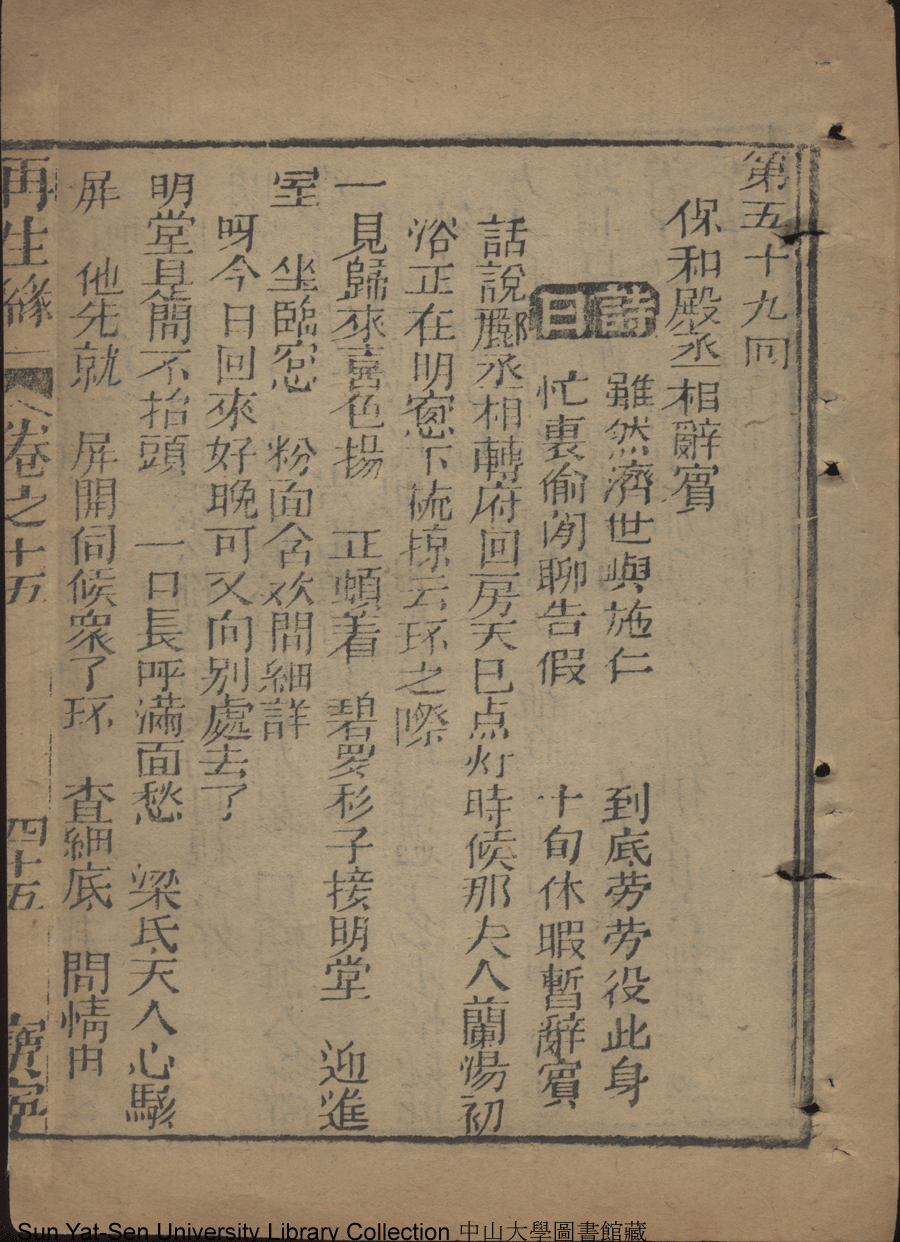 第五十九回
保和殿丞相辭賓
詩曰
雖然濟世與施仁 到底劳劳役此身
忙裏偷闲聊告假 十旬休暇暫辭賓
話說酈丞相轉府回房天已点灯時候那夫人蘭湯初
浴正在明窓下梳掠云环之際
一見歸來喜色揚 正頓着 碧罗衫子接明堂 迎進
室 坐臨窓 粉面含欢問細詳
呀今日回來好晚可又向别處去了
明堂見簡不抬頭 一口長呼滿面愁 梁氏夫人心駭
屏 他先就 屏開伺候衆了环 查細底 問情由
再生緣 卷之十五 四十五 寳寧
Sun Yat-Sen University Library Collection 中山大學圖書館藏